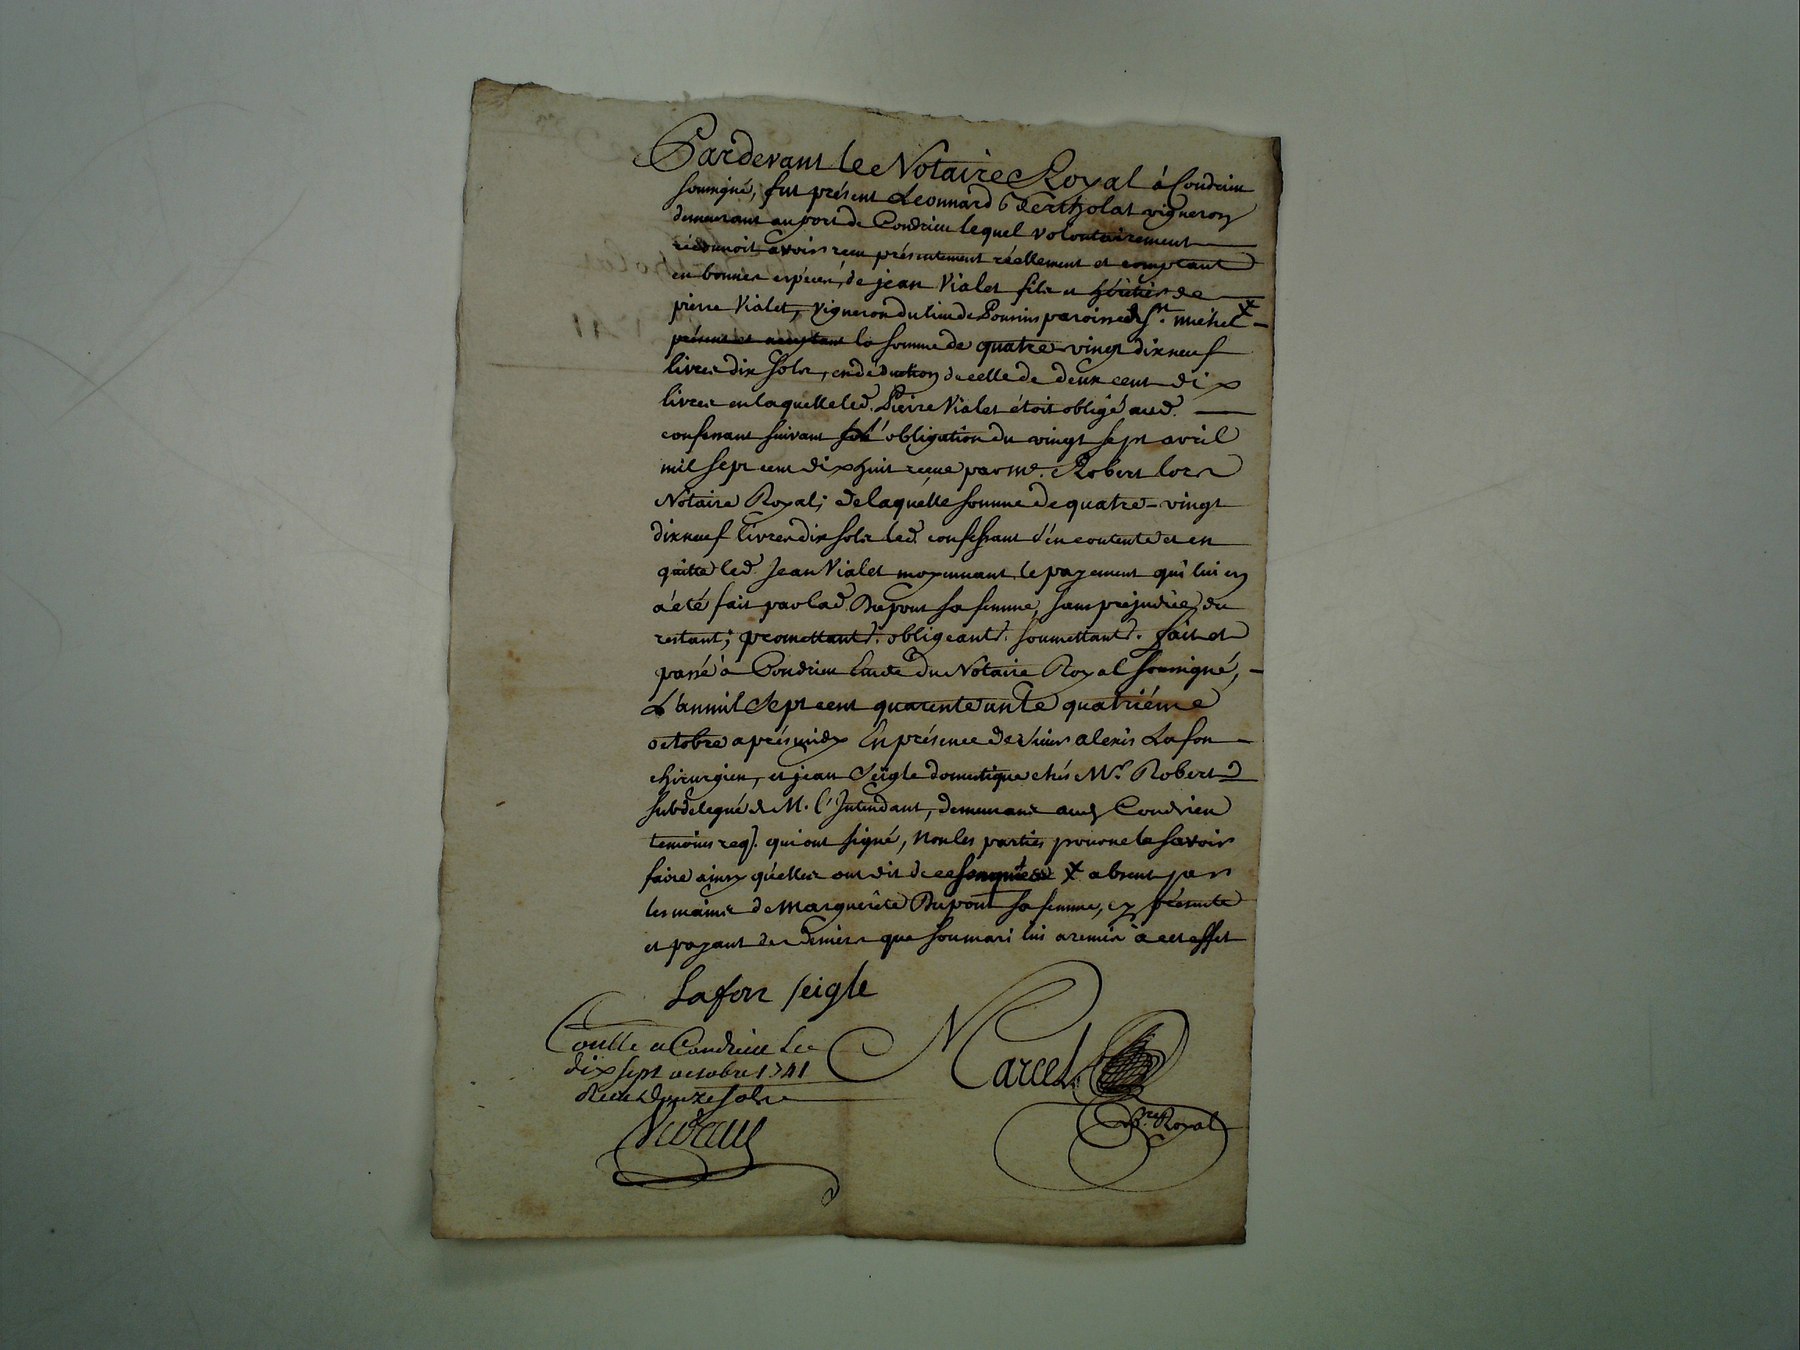 Pardevant le Notaire Royal à Condrieu
soussigné, fut présent Leonnard Bertholat vigneron
demeurant au port de Condrieu lequel volontairement
réconnoit avoir reçu présentement réellement et comptant
en bonnes espéces, de jean Vialet fils et héritier de
pierre Vialet, vigneron du lieu de paroisse de St. michel X
présent et acceptant la somme de quatre-vingt dixneuf
livres dix sols, en déduction de celle de deux cent dix
livres en laquelle led. Pierre Vialet étoit obligé aud.
confessant suivant l'obligation du vingt sept avril
mil sept cent dix huit reçue par me. Robert lors
Notaire Royal; de laquelle somme de quatre-vingt
dixneuf livres dix sols led. confessant s'en contente et en
quitte led. Jean Vialet moyennant le payement qui lui en
a été fait par lad. Dupont sa femme, sans préjudice du
restant; promettant. obligeant. soumettant. fait et
passé à Condrieu Etude du Notaire Royal soussigné,
L'an mil sept cent quarente un le quatriéme
octobre aprés midy En présence de sieur alexis Lafon
chirurgien, et jean Seigle domestique chés Mr. Robert
subdelegué de M. l'Intendant, demeurant aud. Condrieu
temoins req. qui ont signé, non les parties pour ne le savoir
faire ainsy qu'elles ont dit de ce X absent par
les mains de Marguerite Dupont sa femme, cy présente
et payant des deniers que son mari lui a remis à cet effet
Lafon Seigle
Conllé a Condrieu Le
dix sept octobre 1741
Reçu douze sols
Marcel
Nre. Royal